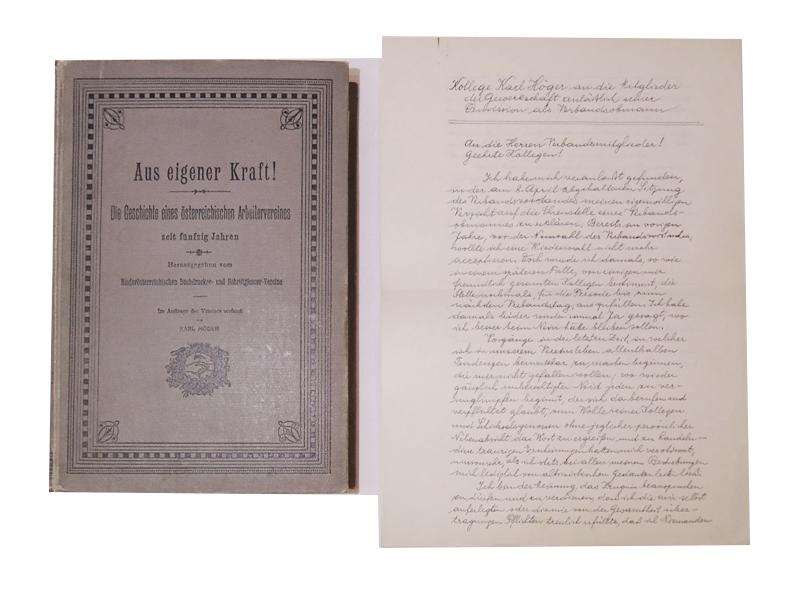 Aus eigener Kraft!
Die Geschichte eines österreichischen Arbeitervereines
seit fünfzig Jahren
Herausgegeben vom
Niederösterreichischen Buchdrucker- und Schriftgiesser-Vereine
Im Auftrage des Vereines verfasst
von
KARL HÖGER
Kollege Karl Höger an die Mitglieder
der Gewerkschaft anläßlich seiner
Demission als Verbandsobmann
An die Herren Verbandsmitglieder!
Geehrte Kollegen!
Ich habe mich veranlaßt gefunden,
in der am 8. April abgehaltenen Sitzung
des Verbandsvorstandes meinen freiwilligen
Verzicht auf die Ehrenstelle eines Verbands-
obmannes zu erklären. Bereits im vorigen
Jahre, vor der Neuwahl des Verbandsvorstandes,
wollte ich eine Wiederwahl nicht mehr
acceptieren. Doch wurde ich damals, so wie
in einem späteren Falle, von einigen mir
freundlich gesinnten Kollegen bestimmt, die
Stelle nochmals, für die Periode bis zum
nächsten Verbandstag, auszufüllen. Ich habe
damals leider wieder einmal Ja gesagt, wo
ich besser beim Nein hätte bleiben sollen.
Vorgänge in der letzten Zeit, in welcher
sich in unserem Vereinsleben allenthalben
Tendenzen bemerkbar zu machen beginnen,
die mir nicht gefallen wollen; wo wieder
Neid jeden zu ver-
beginnt, der sich da berufen und
verpflichtet glaubt, zum Wohle seiner Kollegen
und Schicksalsgenossen ohne jeglicher persönlicher
Nebenabsicht das Wort zu ergreifen und zu handeln –
diese traurigen Erfahrungen haben mich verstimmt,
umsomehr, als ich stets bei allen meinen Bestrebungen
mich lediglich von altruistischen Gedanken leiten lasse.
Ich bin der Meinung, das Zeugnis beanspruchen
zu dürfen und zu verdienen, dass ich die mir selbst
auferlegten oder die mir von der Gesamtheit über-
tragenen Pflichten treulich erfüllte, das ich Niemanden